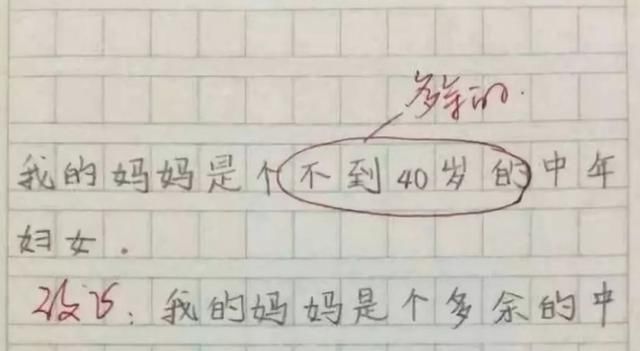 多余的.
我的妈妈是个不到40岁的中年
妇女.
改巧:我的妈妈是个多余的中